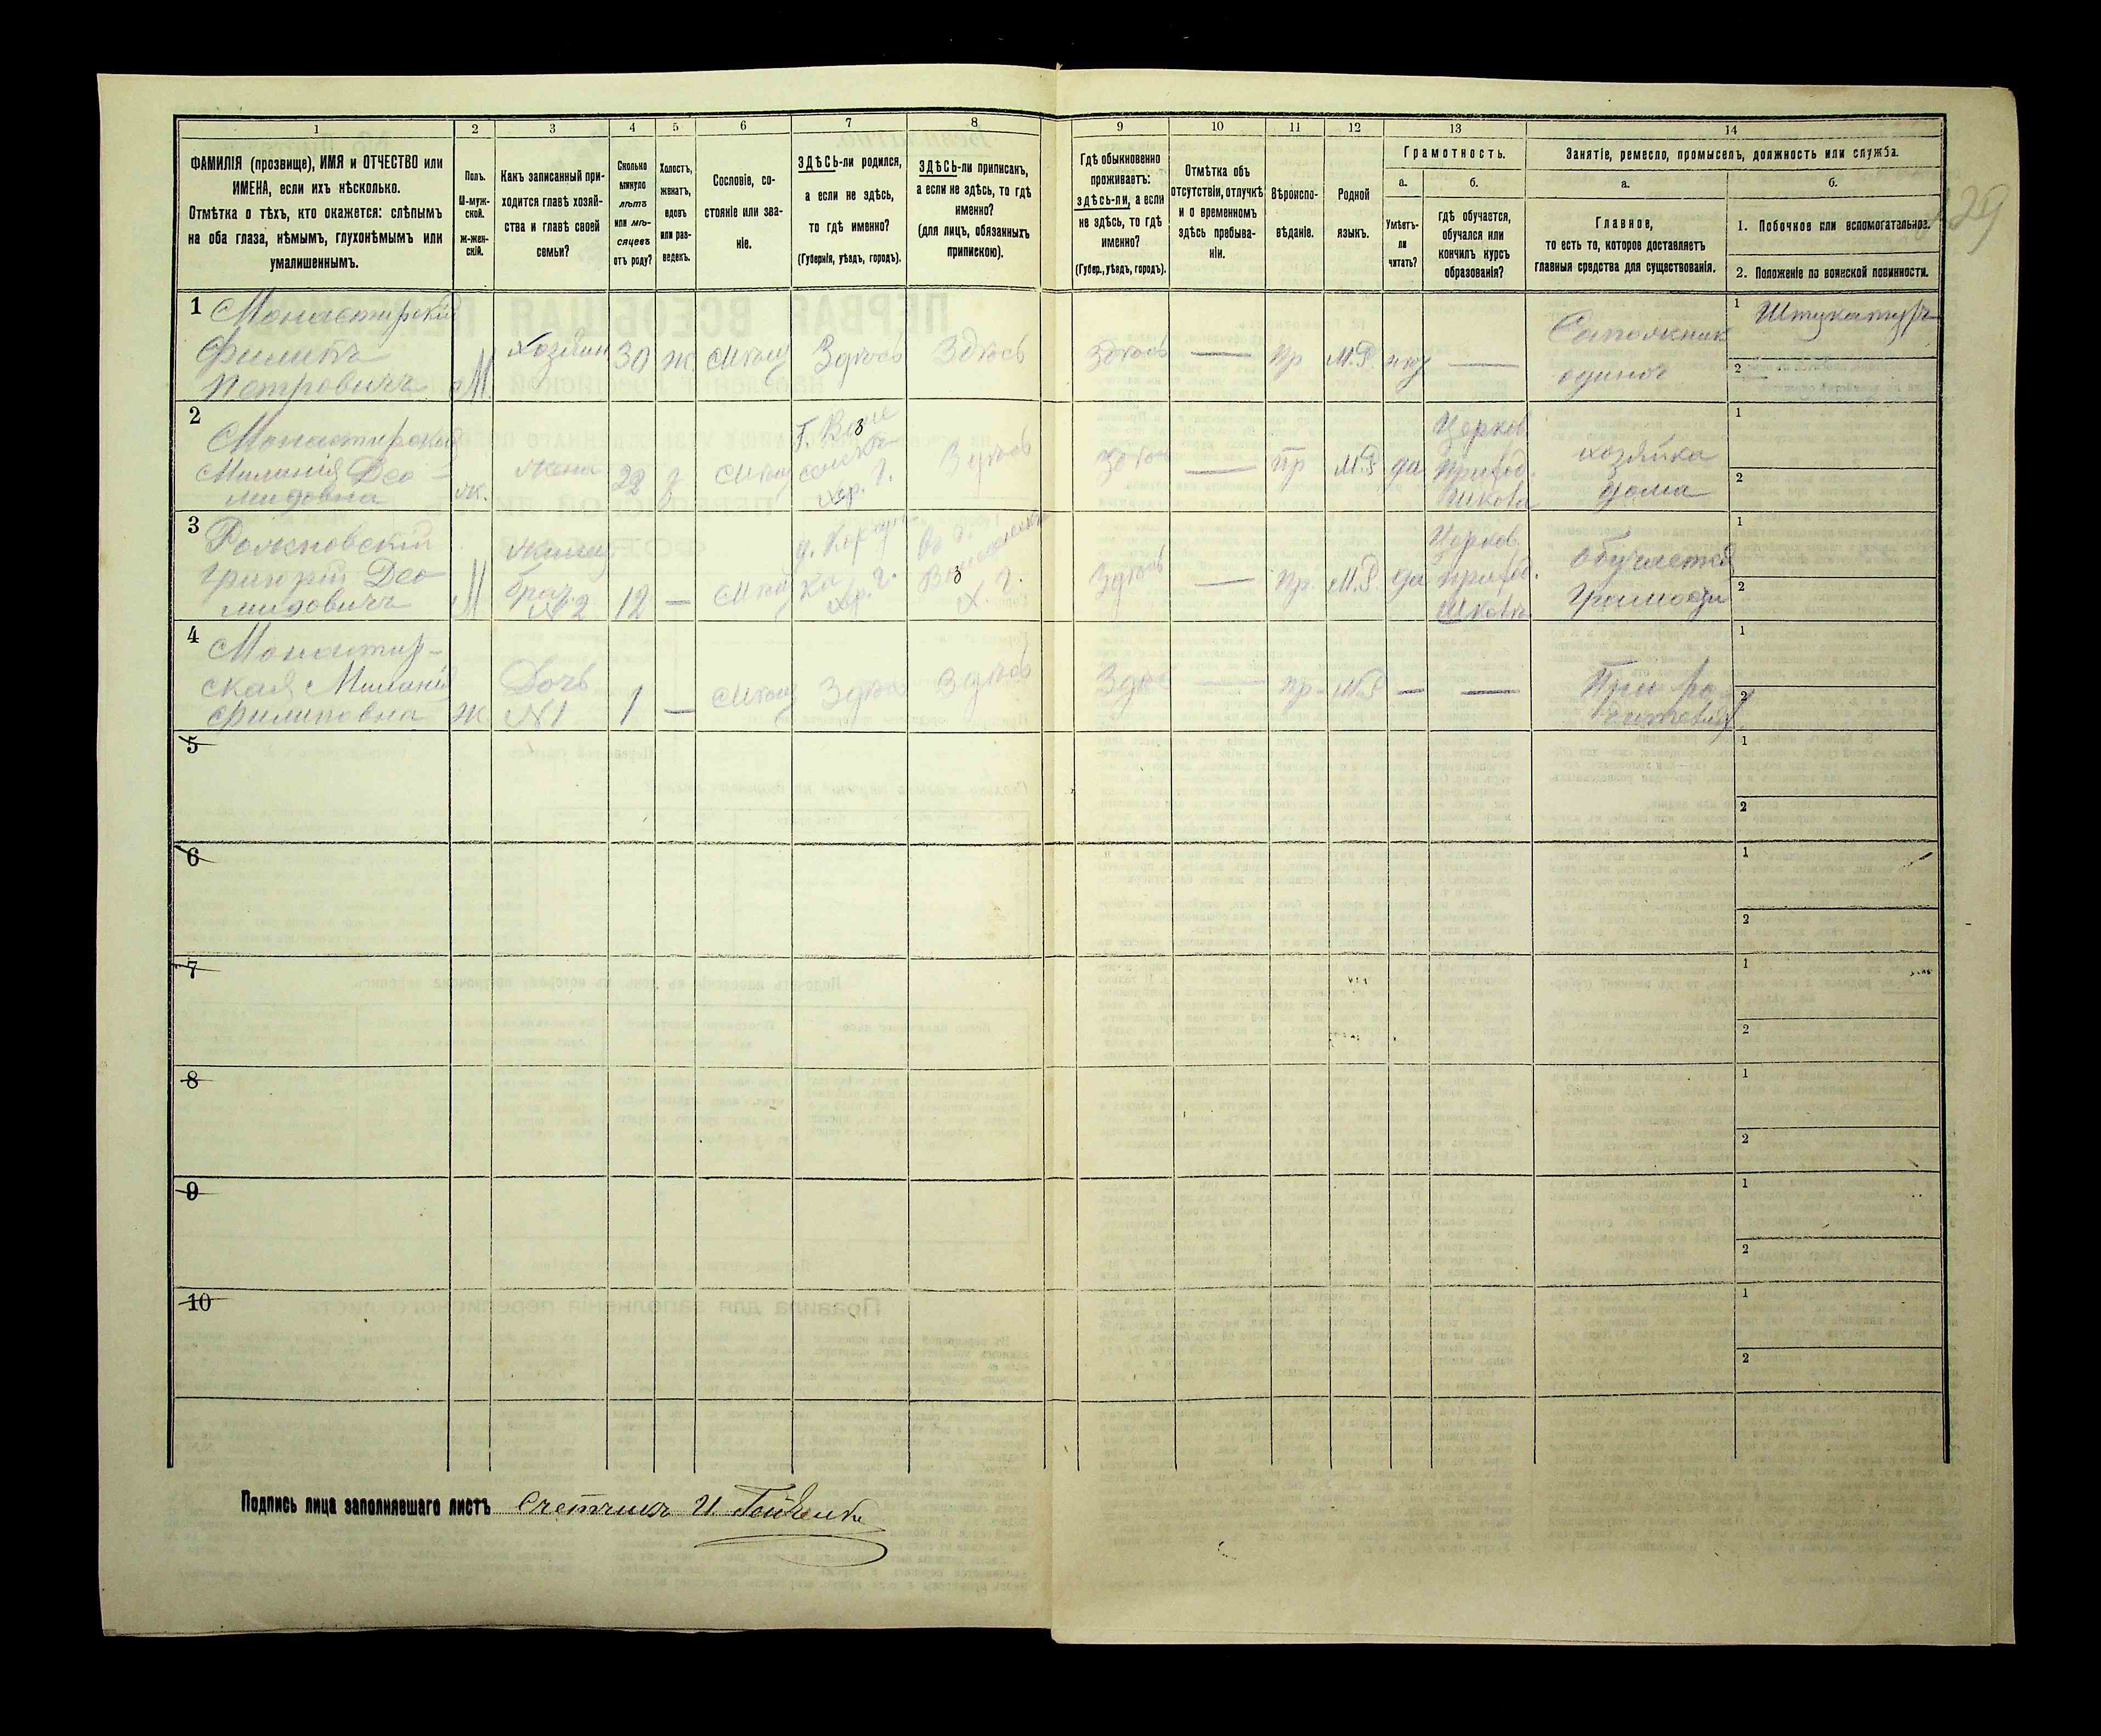 1 2 3 4 5 6 7 8 9 10 11 12 13 14
ФАМИЛІЯ (прозвище), ИМЯ и ОТЧЕСТВО или
ИМЕНА, если ихъ нѣсколько.
Отмѣтка о тѣхъ, кто окажется: слѣпымъ
на оба глаза, нѣмымъ, глухонѣмымъ или
умалишеннымъ.
Полъ.
М-муж-
ской.
ж-жен-
скій.
Какъ записанный при-
ходится главѣ хозяй-
ства и главѣ своей
семьи?
Сколько
минуло
лѣтъ
или мѣ-
сяцевъ
отъ роду?
Холостъ,
женатъ,
вдовъ
или раз-
веденъ.
Сословіе, со-
стояніе или зва-
ніе.
ЗДѢСЬ-ли родился,
а если не здѣсь,
то гдѣ именно?
(Губернія, уѣздъ, городъ).
ЗДѢСЬ-ли приписанъ,
а если не здѣсь, то гдѣ
именно?
(для лицъ, обязанныхъ
припискою).
Гдѣ обыкновенно
проживаетъ:
здѣсь-ли, а если
не здѣсь, то гдѣ
именно?
(Губер., уѣздъ, городъ).
Отмѣтка объ
отсутствіи, отлучкѣ
и о временномъ
здѣсь пребыва-
ніи.
Вѣроиспо-
вѣданіе.
Родной
языкъ.
Грамотность.
а.
Умѣетъ-
ли
читать?
б.
гдѣ обучается,
обучался или
кончилъ курсъ
образованія?
Занятіе, ремесло, промыселъ, должность или служба.
а.
Главное,
то есть то, которое доставляетъ
главныя средства для существованія.
б.
1. Побочное или вспомогательное.
2. Положеніе по воинской повинности.
129
1 Монастирскій
Филипъ
Петровичъ
М.
Хозяин
30
ж.
Мѣщ
Здѣсь
Здѣсь
Здѣсь
—
пр
М.Р.
—
Сапожник
одиноч
1 Штукатуръ
2 —
2
Монастирская
Миланія Део-
мидовна
ж.
жена
22
з
Мѣщ
Г. Возне
сенскъ
Хер. г.
Здѣсь
Здѣсь
—
пр
М.Р.
да
Церков.
приход.
школа
хозяйка
дома
1
2
3
Рожновскій
Григорій Део
мидовичъ
М
жены
братъ
№2
12
—
Мѣщ
Хер. г.
Х. г.
Здѣсь
—
пр.
М.Р.
да
Церков.
приход.
школа
обучается
Грамоти
1
2
4
Монастир-
ская Миланія
Филиповна
ж
Дочь
№1
1
—
Мѣщ
Здѣсь
Здѣсь
Здѣсь
—
пр-
М.Р
—
—
При ро-
дителях
1
2
5
1
2
6
1
2
7
1
2
8
1
2
9
1
2
10
1
2
Подпись лица заполнявшаго листъ Счетчикъ И.